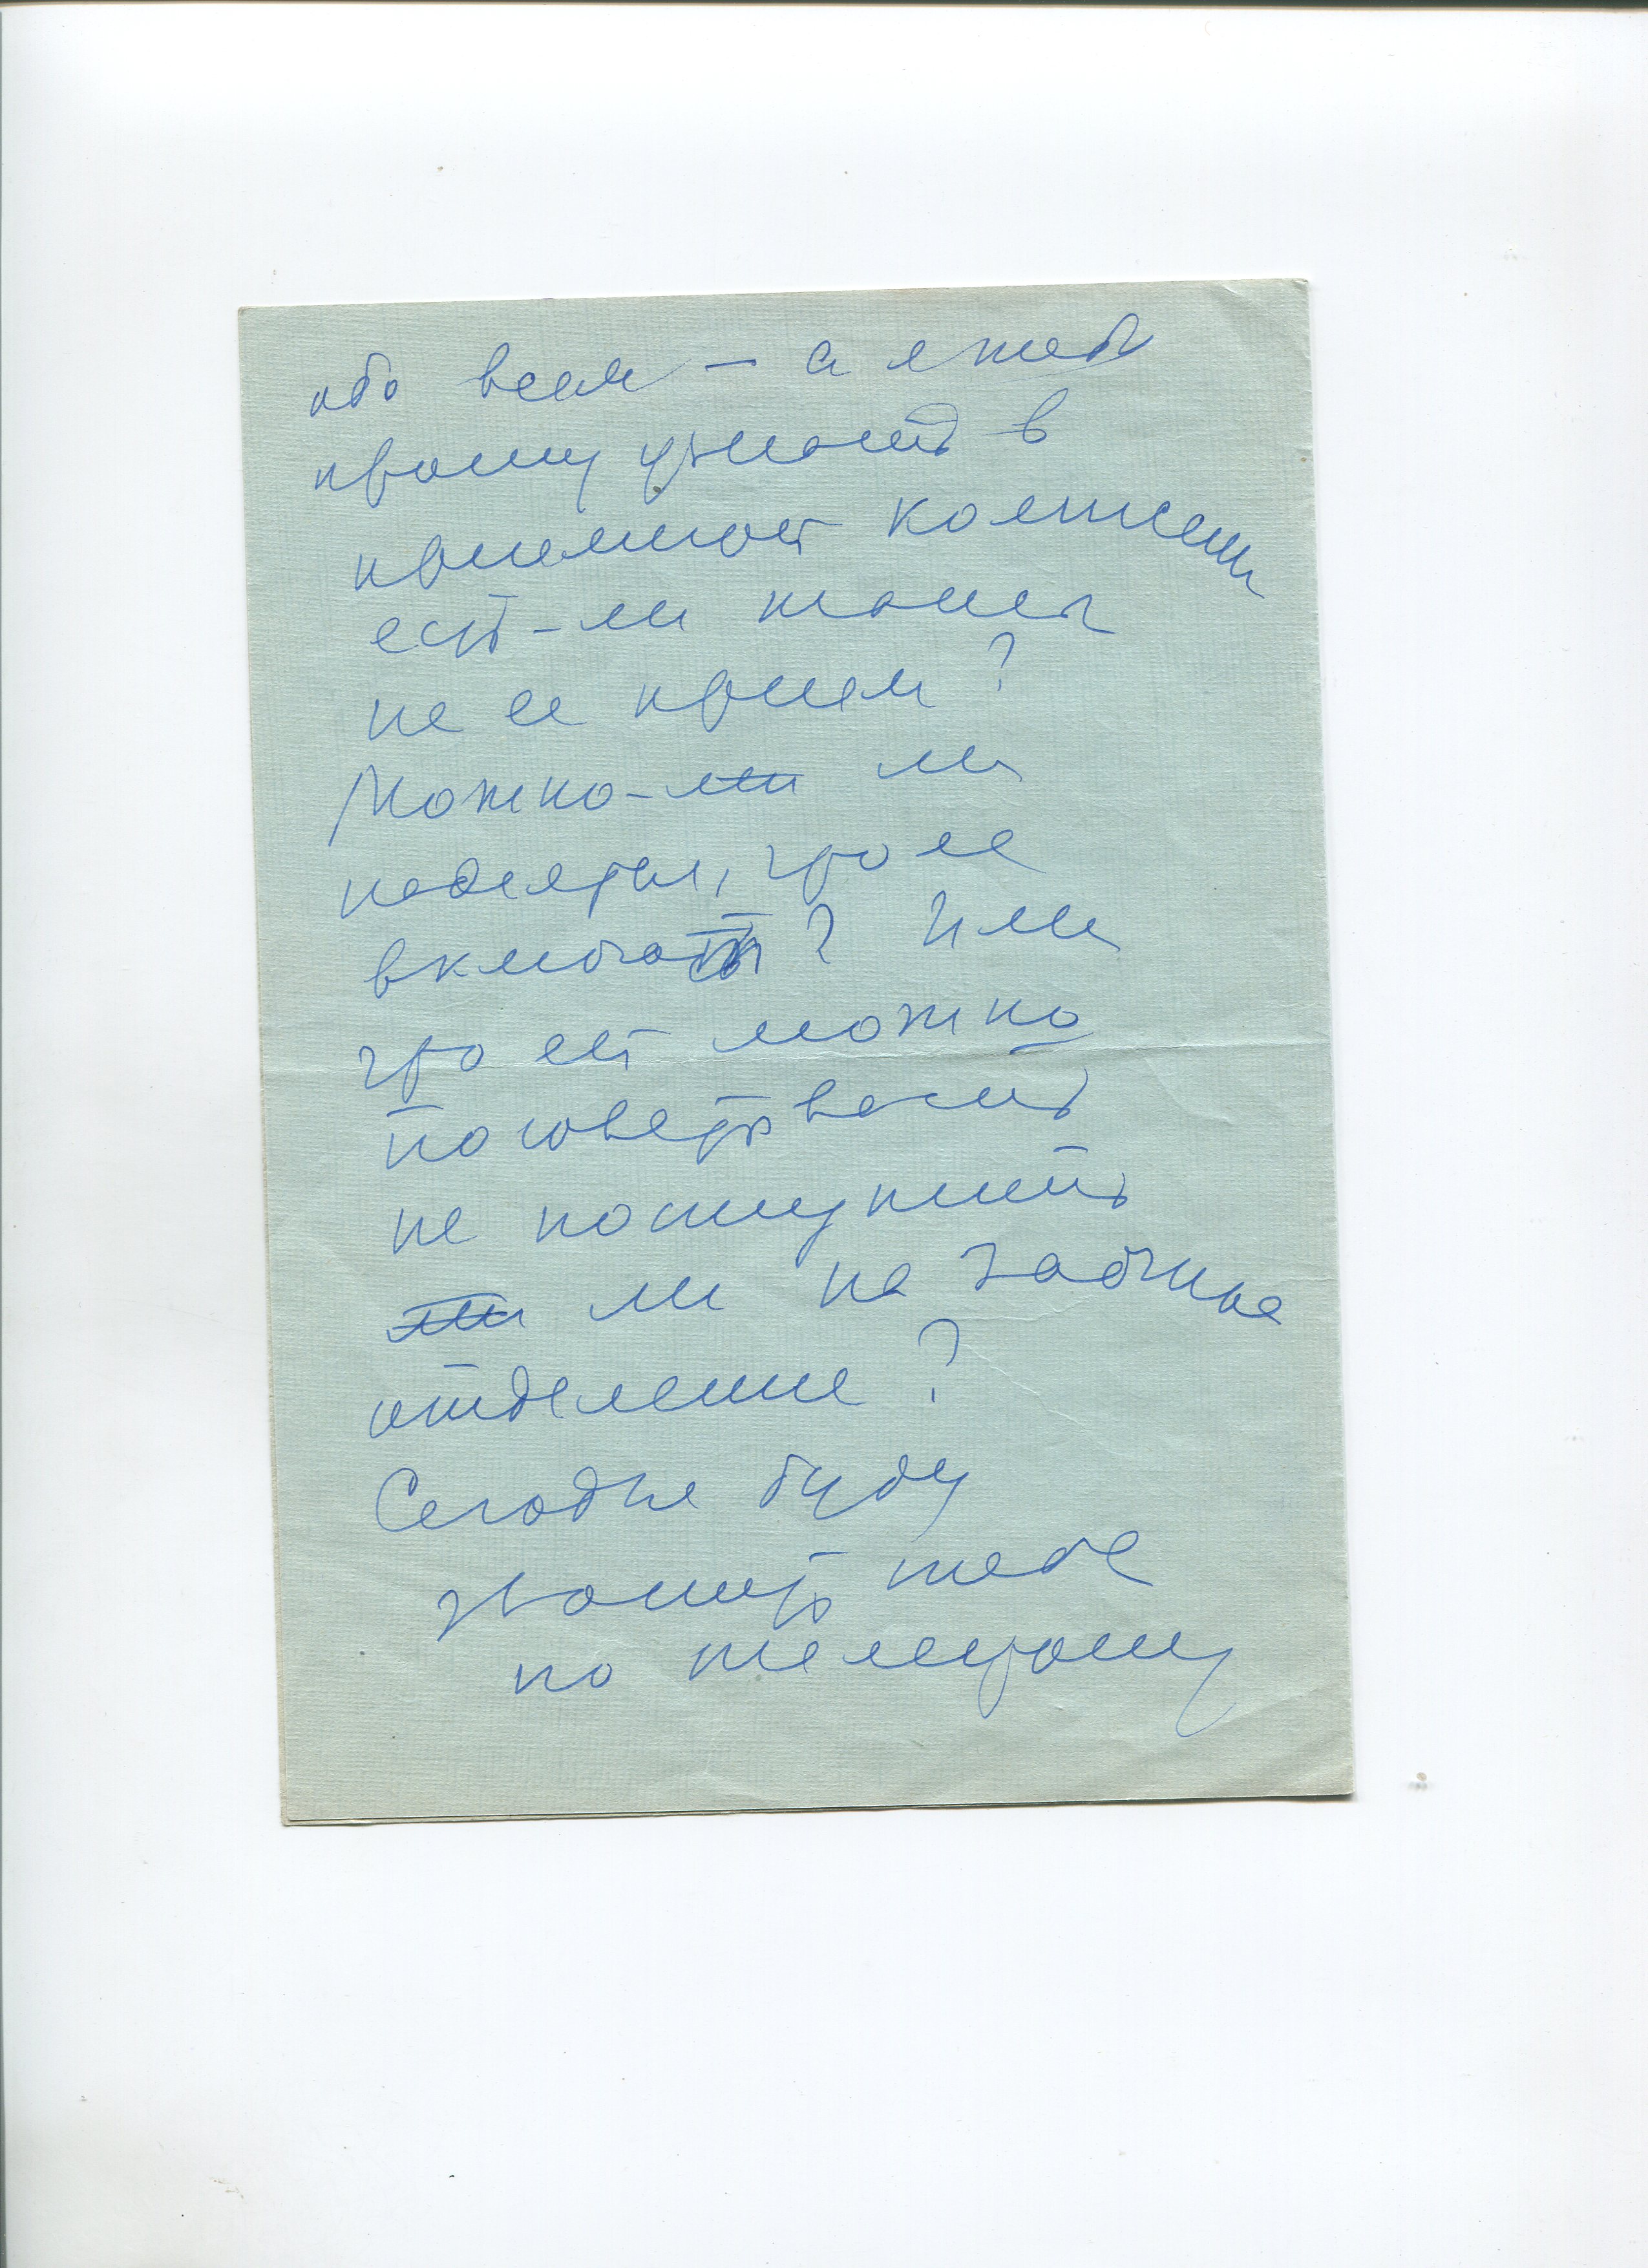 обо всем – а я тебя
прошу узнать в
приемной комиссии
есть-ли шансы
на ее прием?
Можно-ли ли
надеяться, что ее
включат? Или
что ей можно
посоветовать
не поступить
ли ли на заочное
отделение?
Сегодня буду
звонить тебе
по телефону